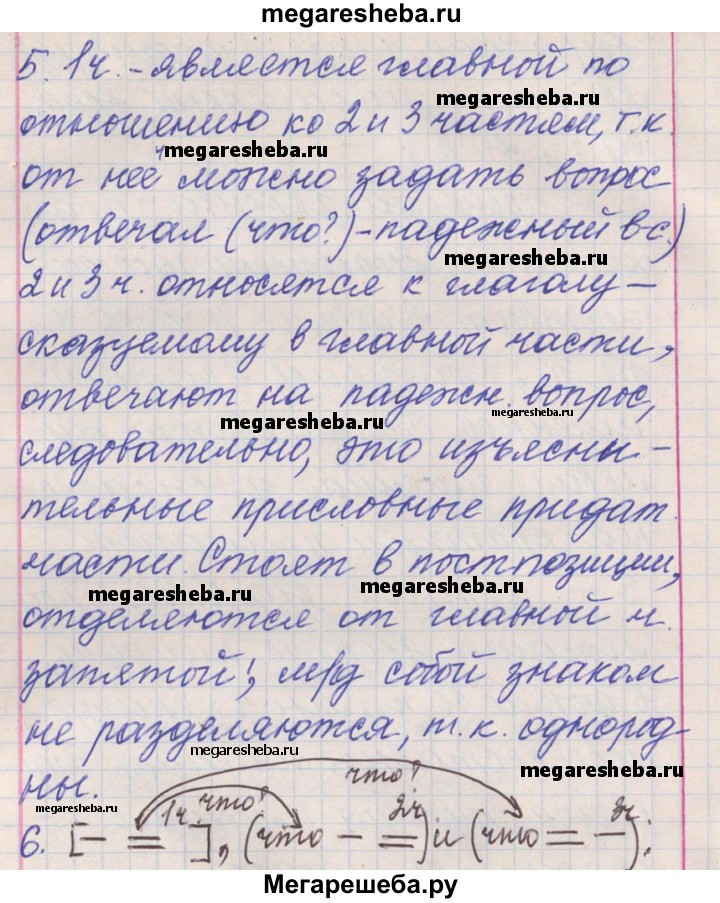 megaresheba.ru
5. 1ч. - является главной по
megaresheba.ru
отношению ко 2 и 3 частям, т.к.
megaresheba.ru
от неё можно задать вопрос
(отвечал (что?) - падежный в-с.)
megaresheba.ru
2 и 3 ч. относятся к глаголу -
сказуемому в главной части,
отвечают на падежн. вопрос,
megaresheba.ru megaresheba.ru
следовательно, это изъясни-
тельные присловные придат.
части. Стоят в постпозиции,
megaresheba.ru megaresheba.ru
отделяются от главной ч.
запятой; м/д собой знаком
не разделяются, т.к. однород-
megaresheba.ru megaresheba.ru
ны.
что?
megaresheba.ru
1ч. что? 2ч 3ч.
6. [— =], (что — =) и (что = —).
Мегарешеба.ру